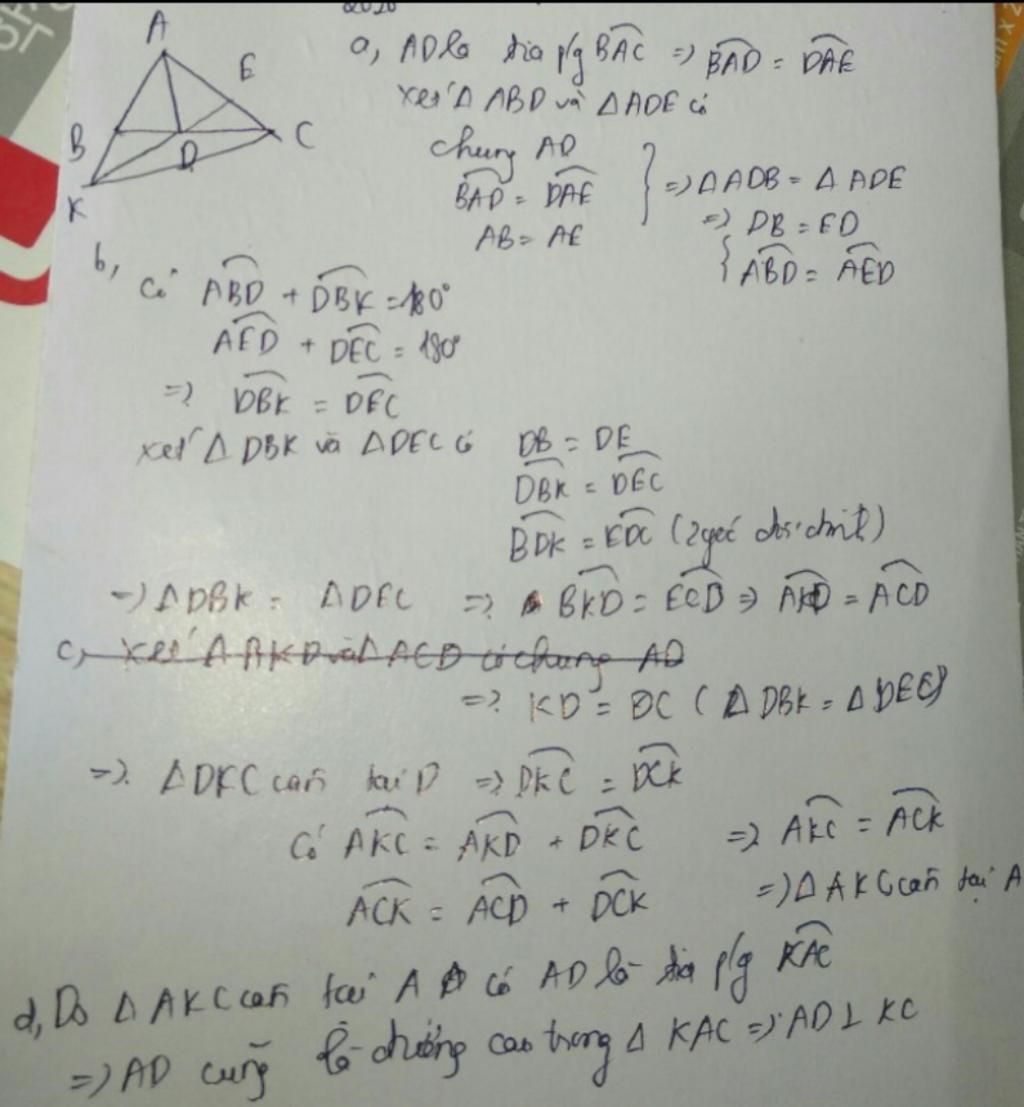 2020
A
E
B
D
C
K
a, AD là tia p/g BAC => BAD = DAE
xét Δ ABD và Δ ADE có
chung AD
BAD = DAE } => Δ ADB = Δ ADE
AB = AE => DB = ED
{ ABD = AED
b,
Có ABD + DBK = 180°
AED + DEC = 180°
=> DBK = DEC
xét Δ DBK và Δ DEC có DB = DE
DBK = DEC
BDK = EDC (2 góc đối đỉnh)
=> Δ DBK = Δ DEC => BKD = ECD => AKD = ACD
c, xét Δ AKD và Δ ACD có chung AD
=> KD = DC (Δ DBK = Δ DEC)
=> Δ DKC cân tại D => DKC = DCK
Có AKC = AKD + DKC => AKC = ACK
ACK = ACD + DCK => Δ AKC cân tại A
d, Do Δ AKC cân tại A có AD là tia p/g KAC
=> AD cũng là đường cao trong Δ KAC => AD ⊥ KC